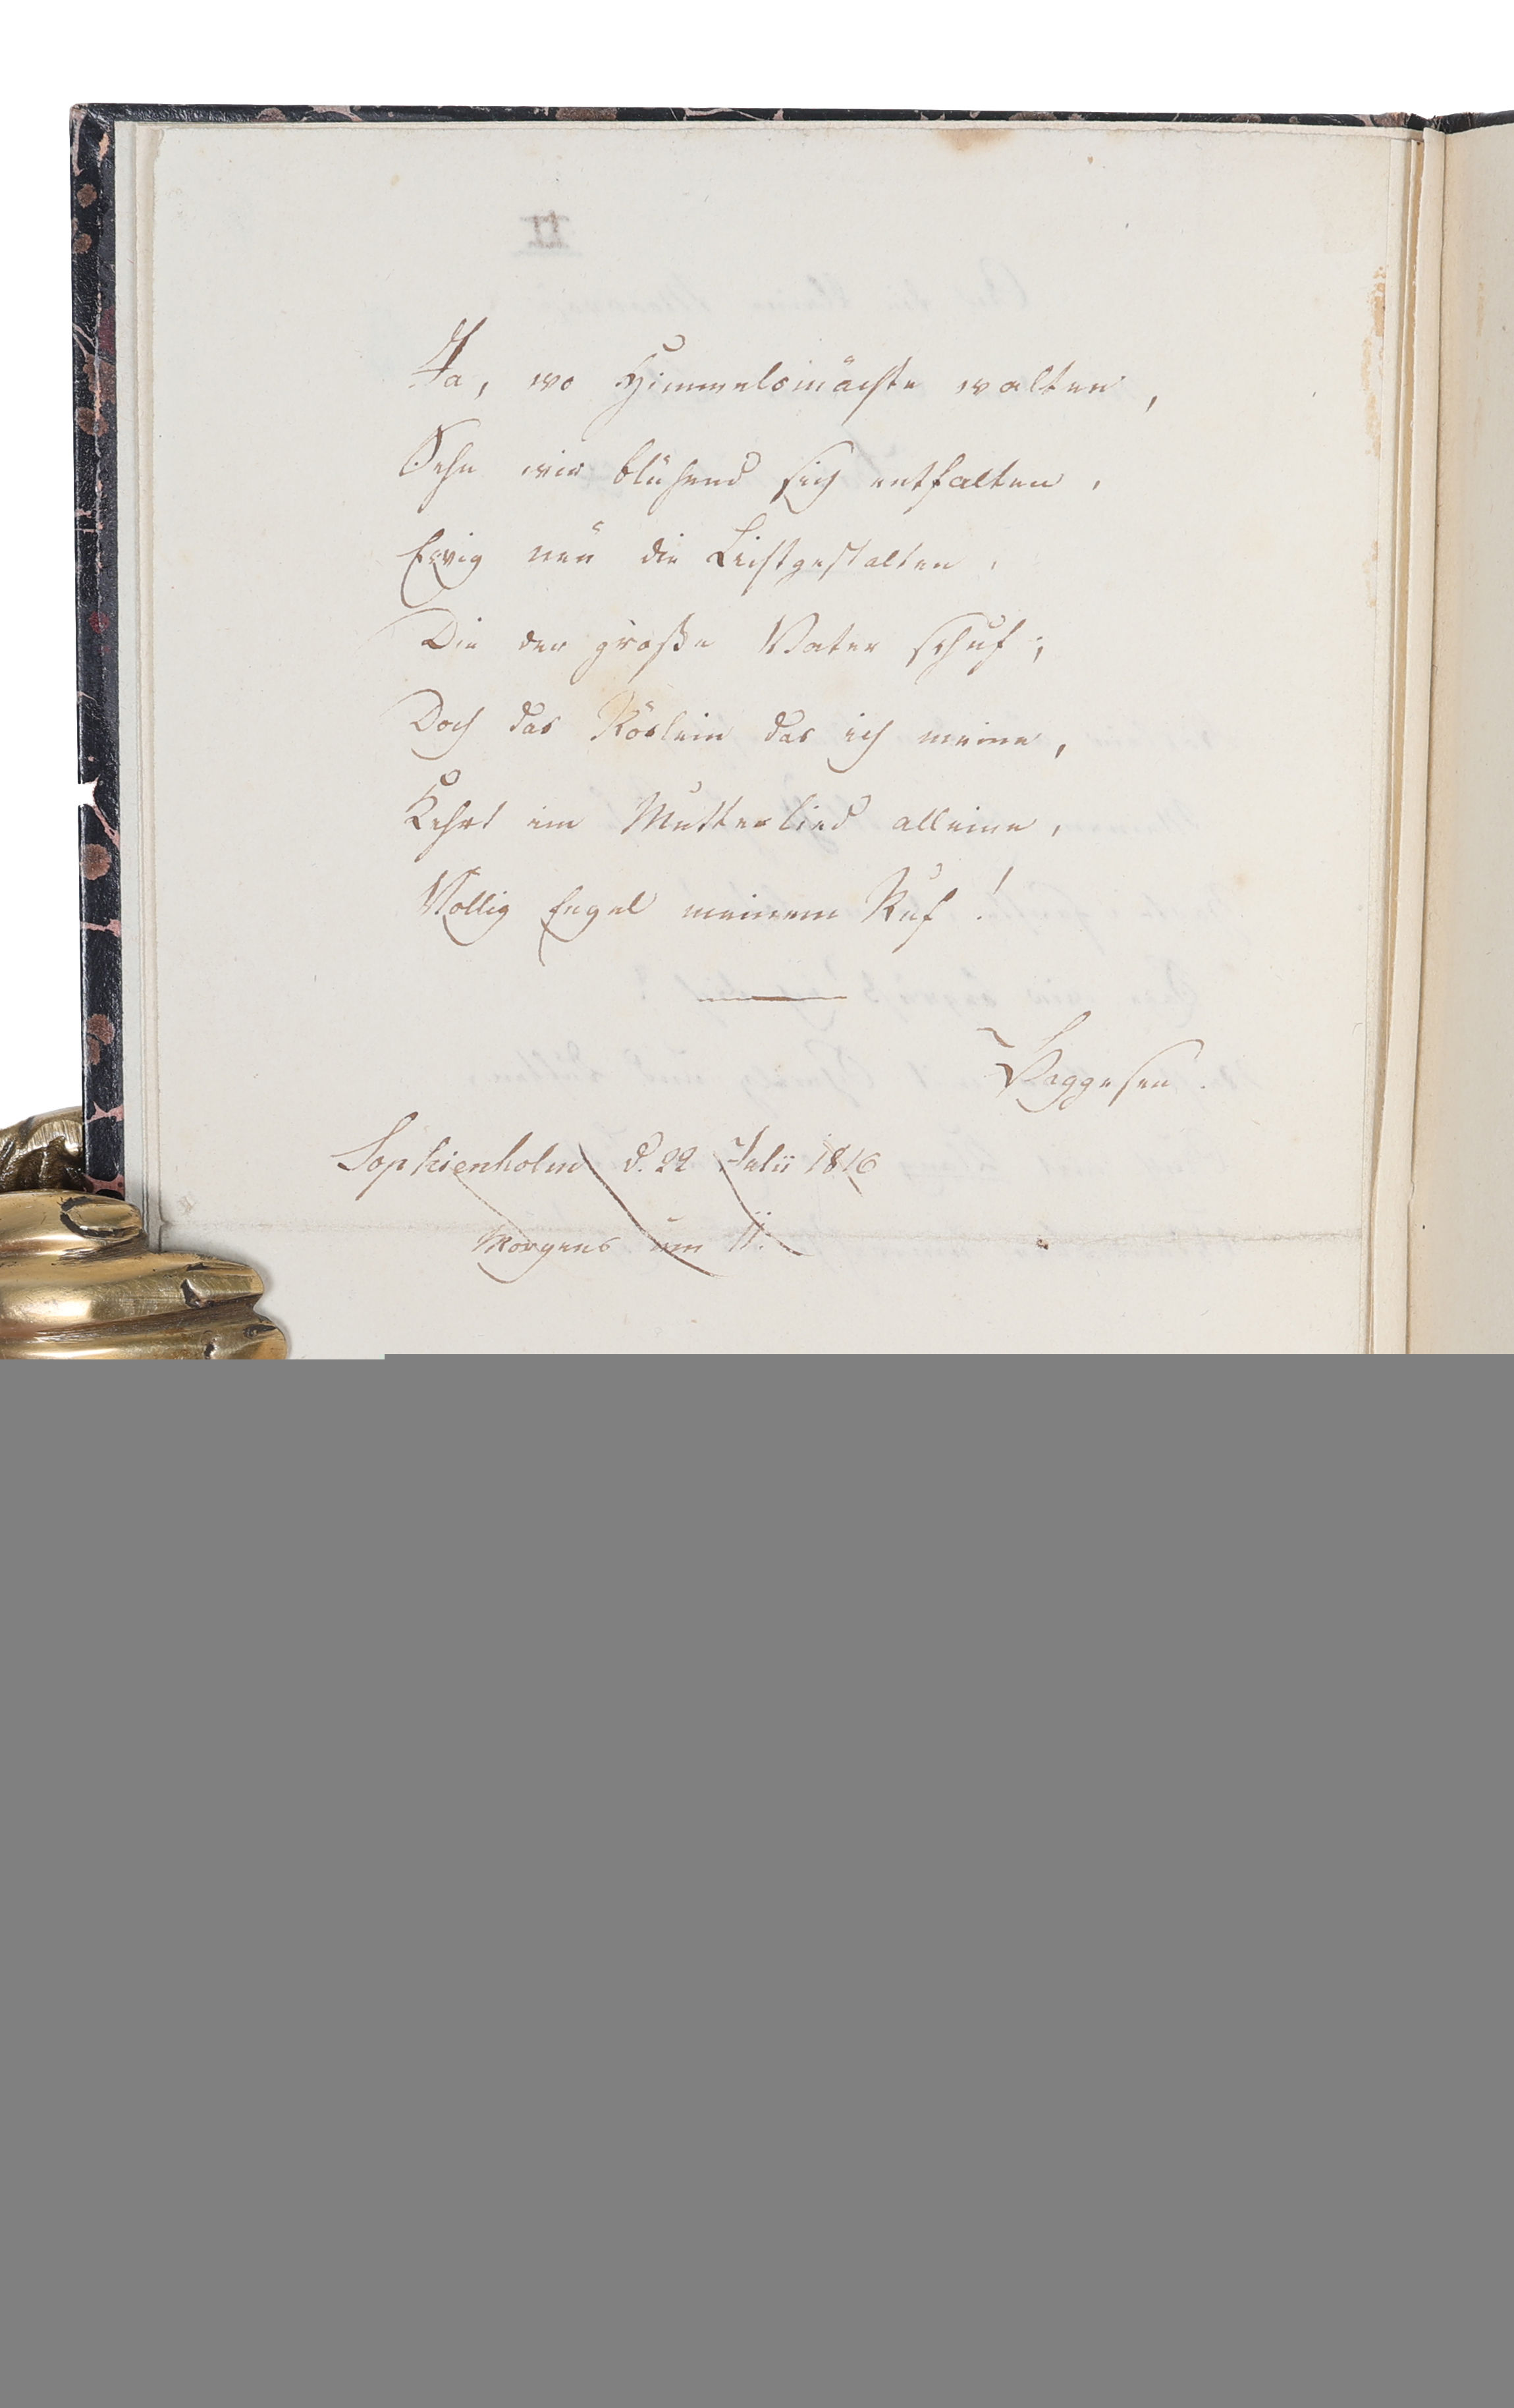 Ja, wo Himmelsmächte walten,
Sehn wir blühend sich entfalten,
Ewig neu die Lichtgestalten,
Die der große Vater schuf;
Doch das Röslein das ich meine,
Kehrt im Mutterlied alleine,
Völlig Engel meinem Ruf!
Baggesen.
Sophienholm d. 22 Julii 1816
Morgens um 11.